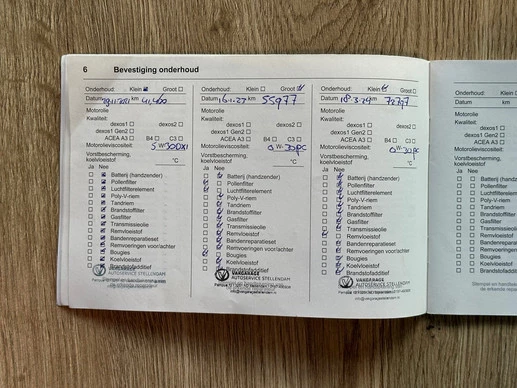 6 Bevestiging onderhoud
Onderhoud: Klein Groot
Datum km
Motorolie
Kwaliteit:
dexos1 dexos2
dexos1 Gen2
ACEA A3 B4 C3
Motorolieviscositeit: 5 W 30
Vorstbescherming,
koelvloeistof °C
Ja Nee
Batterij (handzender)
Pollenfilter
Luchtfilterelement
Poly-V-riem
Tandriem
Brandstoffilter
Gasfilter
Transmissieolie
Remvloeistof
Bandenreparatieset
Remvoeringen voor/achter
Bougies
Koelvloeistof
Brandstofadditief
VAKGARAGE
AUTOSERVICE STELLENDAM
Onderhoud: Klein Groot
Datum km 55977
Motorolie
Kwaliteit:
dexos1 dexos2
dexos1 Gen2
ACEA A3 B4 C3
Motorolieviscositeit: 0 W 30
Vorstbescherming,
koelvloeistof °C
Ja Nee
Batterij (handzender)
Pollenfilter
Luchtfilterelement
Poly-V-riem
Tandriem
Brandstoffilter
Gasfilter
Transmissieolie
Remvloeistof
Bandenreparatieset
Remvoeringen voor/achter
Bougies
Koelvloeistof
Brandstofadditief
VAKGARAGE
AUTOSERVICE STELLENDAM
Onderhoud: Klein Groot
Datum km
Motorolie
Kwaliteit:
dexos1 dexos2
dexos1 Gen2
ACEA A3 B4 C3
Motorolieviscositeit: 0 W 30
Vorstbescherming,
koelvloeistof °C
Ja Nee
Batterij (handzender)
Pollenfilter
Luchtfilterelement
Poly-V-riem
Tandriem
Brandstoffilter
Gasfilter
Transmissieolie
Remvloeistof
Bandenreparatieset
Remvoeringen voor/achter
Bougies
Koelvloeistof
Brandstofadditief
VAKGARAGE
AUTOSERVICE STELLENDAM
Onderhoud: Klein
Datum
Motorolie
Kwaliteit:
dexos1
dexos1 Gen2
ACEA A3
Motorolieviscositeit:
Vorstbescherming,
koelvloeistof
Ja Nee
Batterij (handzender)
Pollenfilter
Luchtfilterelement
Poly-V-riem
Tandriem
Brandstoffilter
Gasfilter
Transmissieolie
Remvloeistof
Bandenreparatieset
Remvoeringen
Bougies
Koelvloeistof
Brandstofadditief